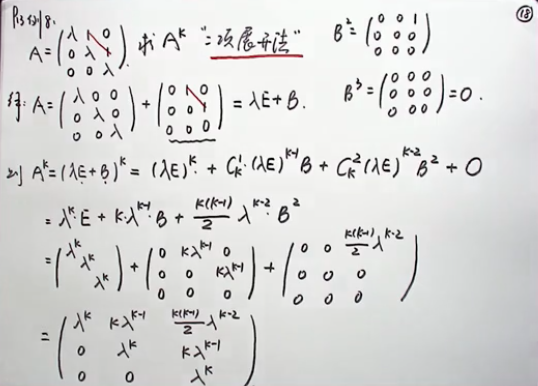 例18:
A=(λ 1 0
0 λ 1
0 0 λ). 求 A^k "二项展开法" B²=(0 0 1
0 0 0
0 0 0)
⑱
解: A=(λ 0 0
0 λ 0
0 0 λ)+(0 1 0
0 0 1
0 0 0)=λE+B. B³=(0 0 0
0 0 0
0 0 0)=0.
则 A^k=(λE+B)^k=(λE)^k+C_k^1·(λE)^{k-1}B+C_k^2(λE)^{k-2}B²+0
=λ^k·E+k·λ^{k-1}·B+k(k-1)/2 λ^{k-2}·B²
=(λ^k
λ^k
λ^k)+(0 kλ^{k-1} 0
0 0 kλ^{k-1}
0 0 0)+(0 0 k(k-1)/2 λ^{k-2}
0 0 0
0 0 0)
=(λ^k kλ^{k-1} k(k-1)/2 λ^{k-2}
0 λ^k kλ^{k-1}
0 0 λ^k)